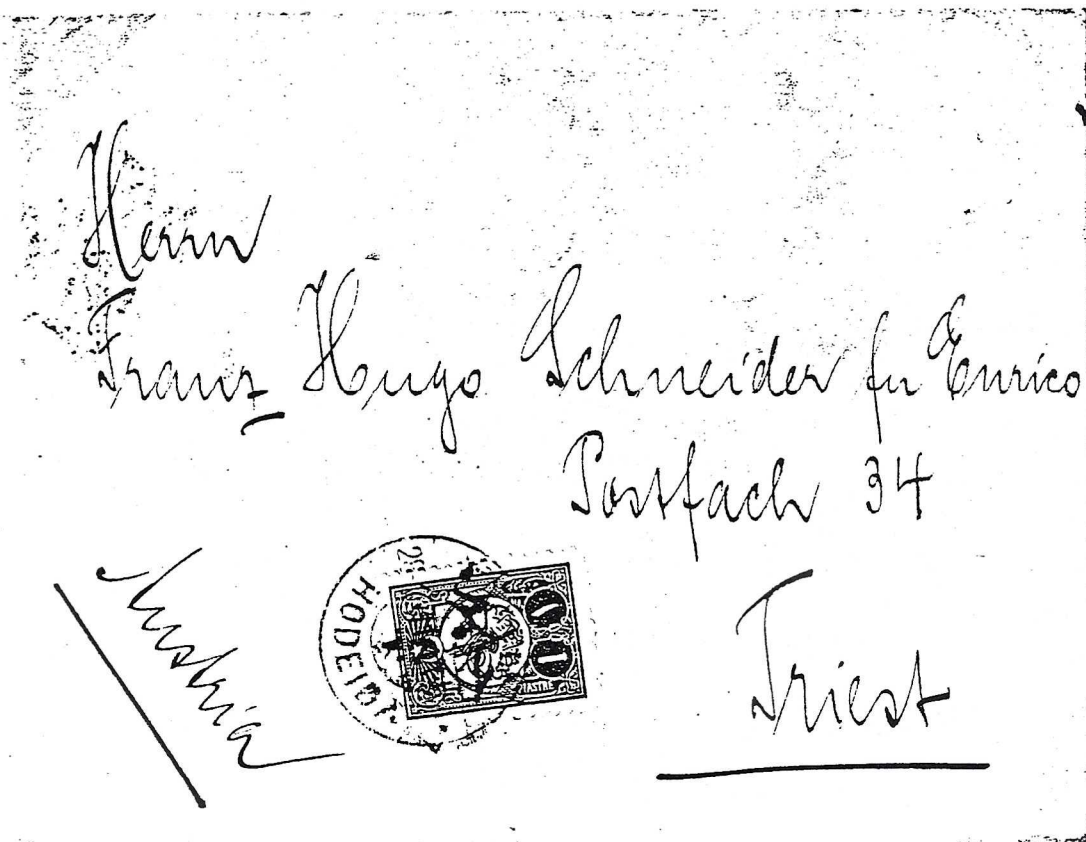 Herrn
Franz Hugo Schneider fu Enrico
Postfach 34
Triest
Austria
HODEIDA
1 1
PIASTRE